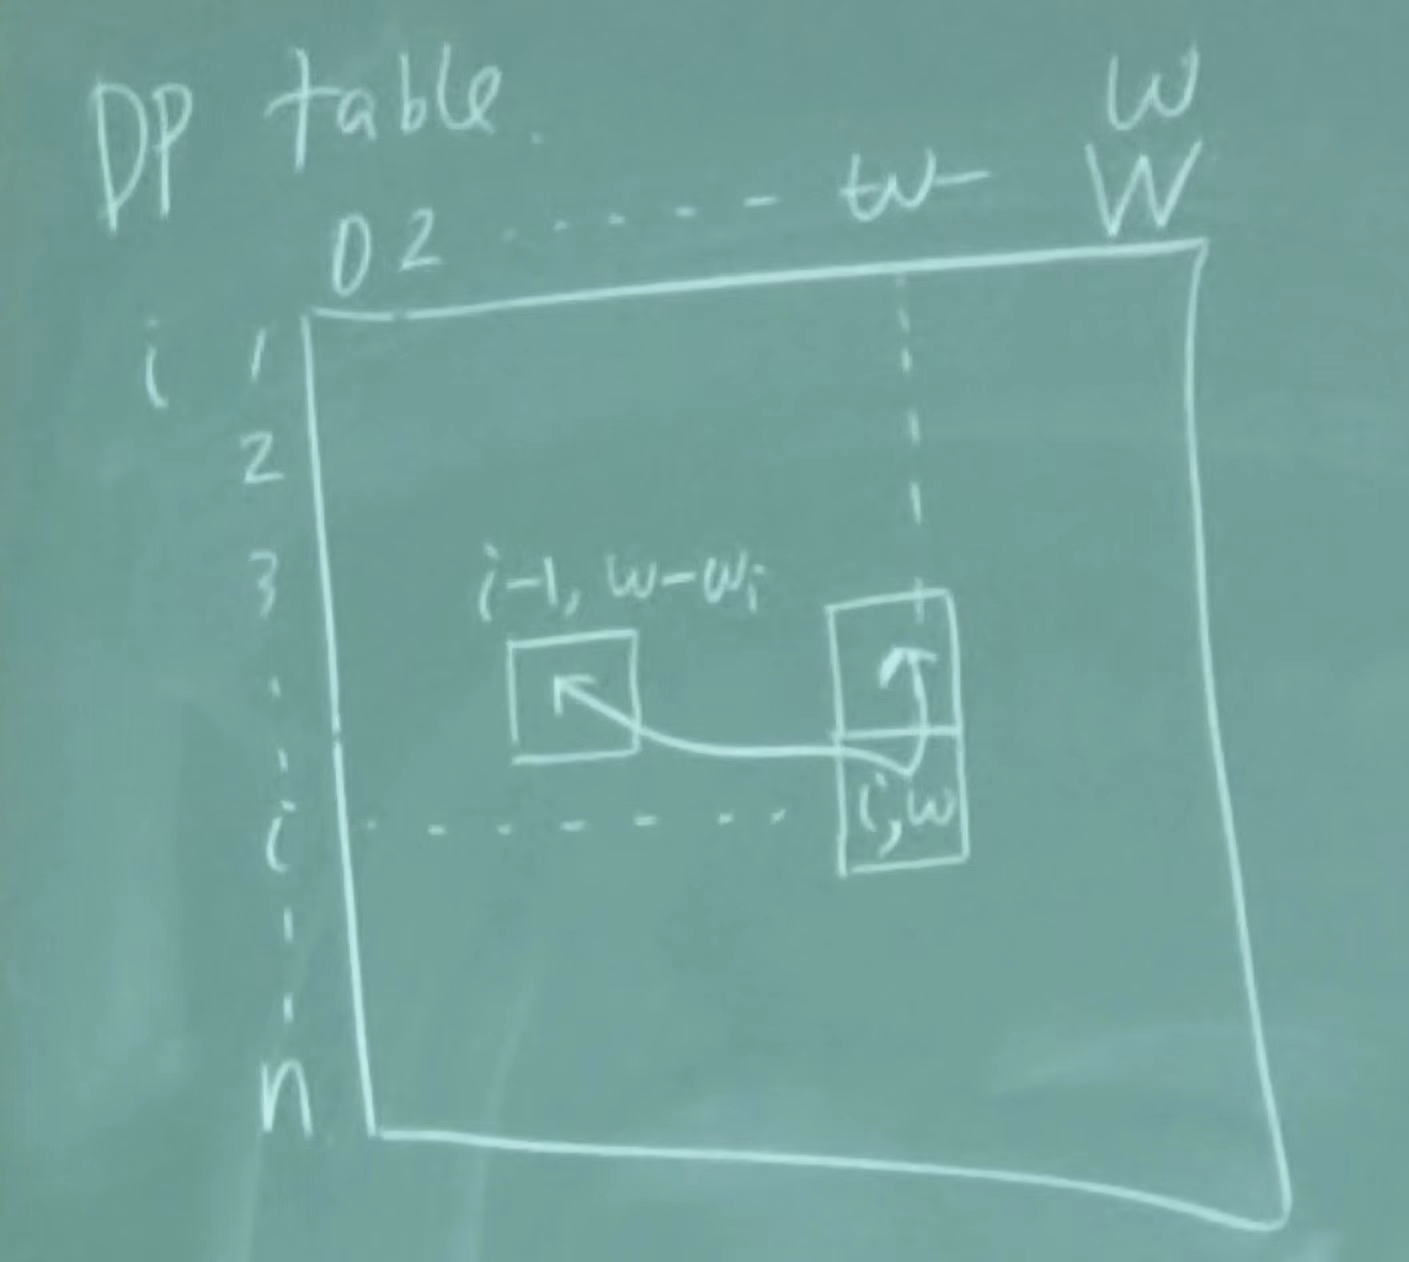 DP table.
w
0 2 ------ w- W
i 1
2
3
i-1, w-wi
i i,w
n